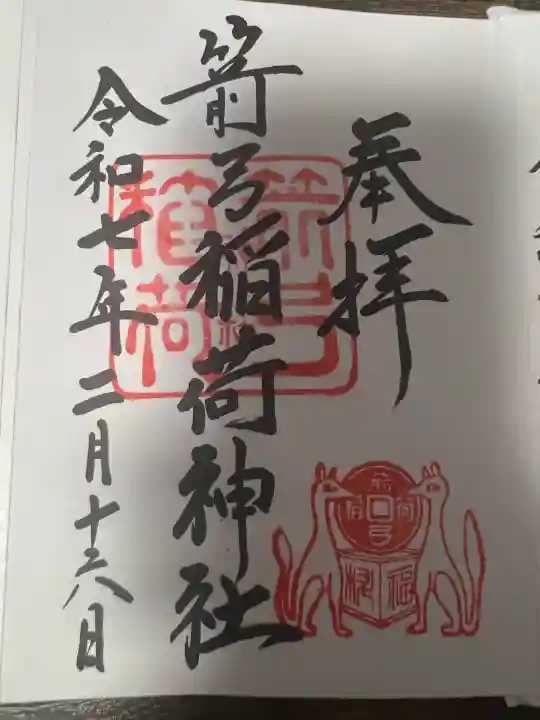 奉拝
箭弓稲荷神社
令和七年二月十六日
箭弓
稲荷